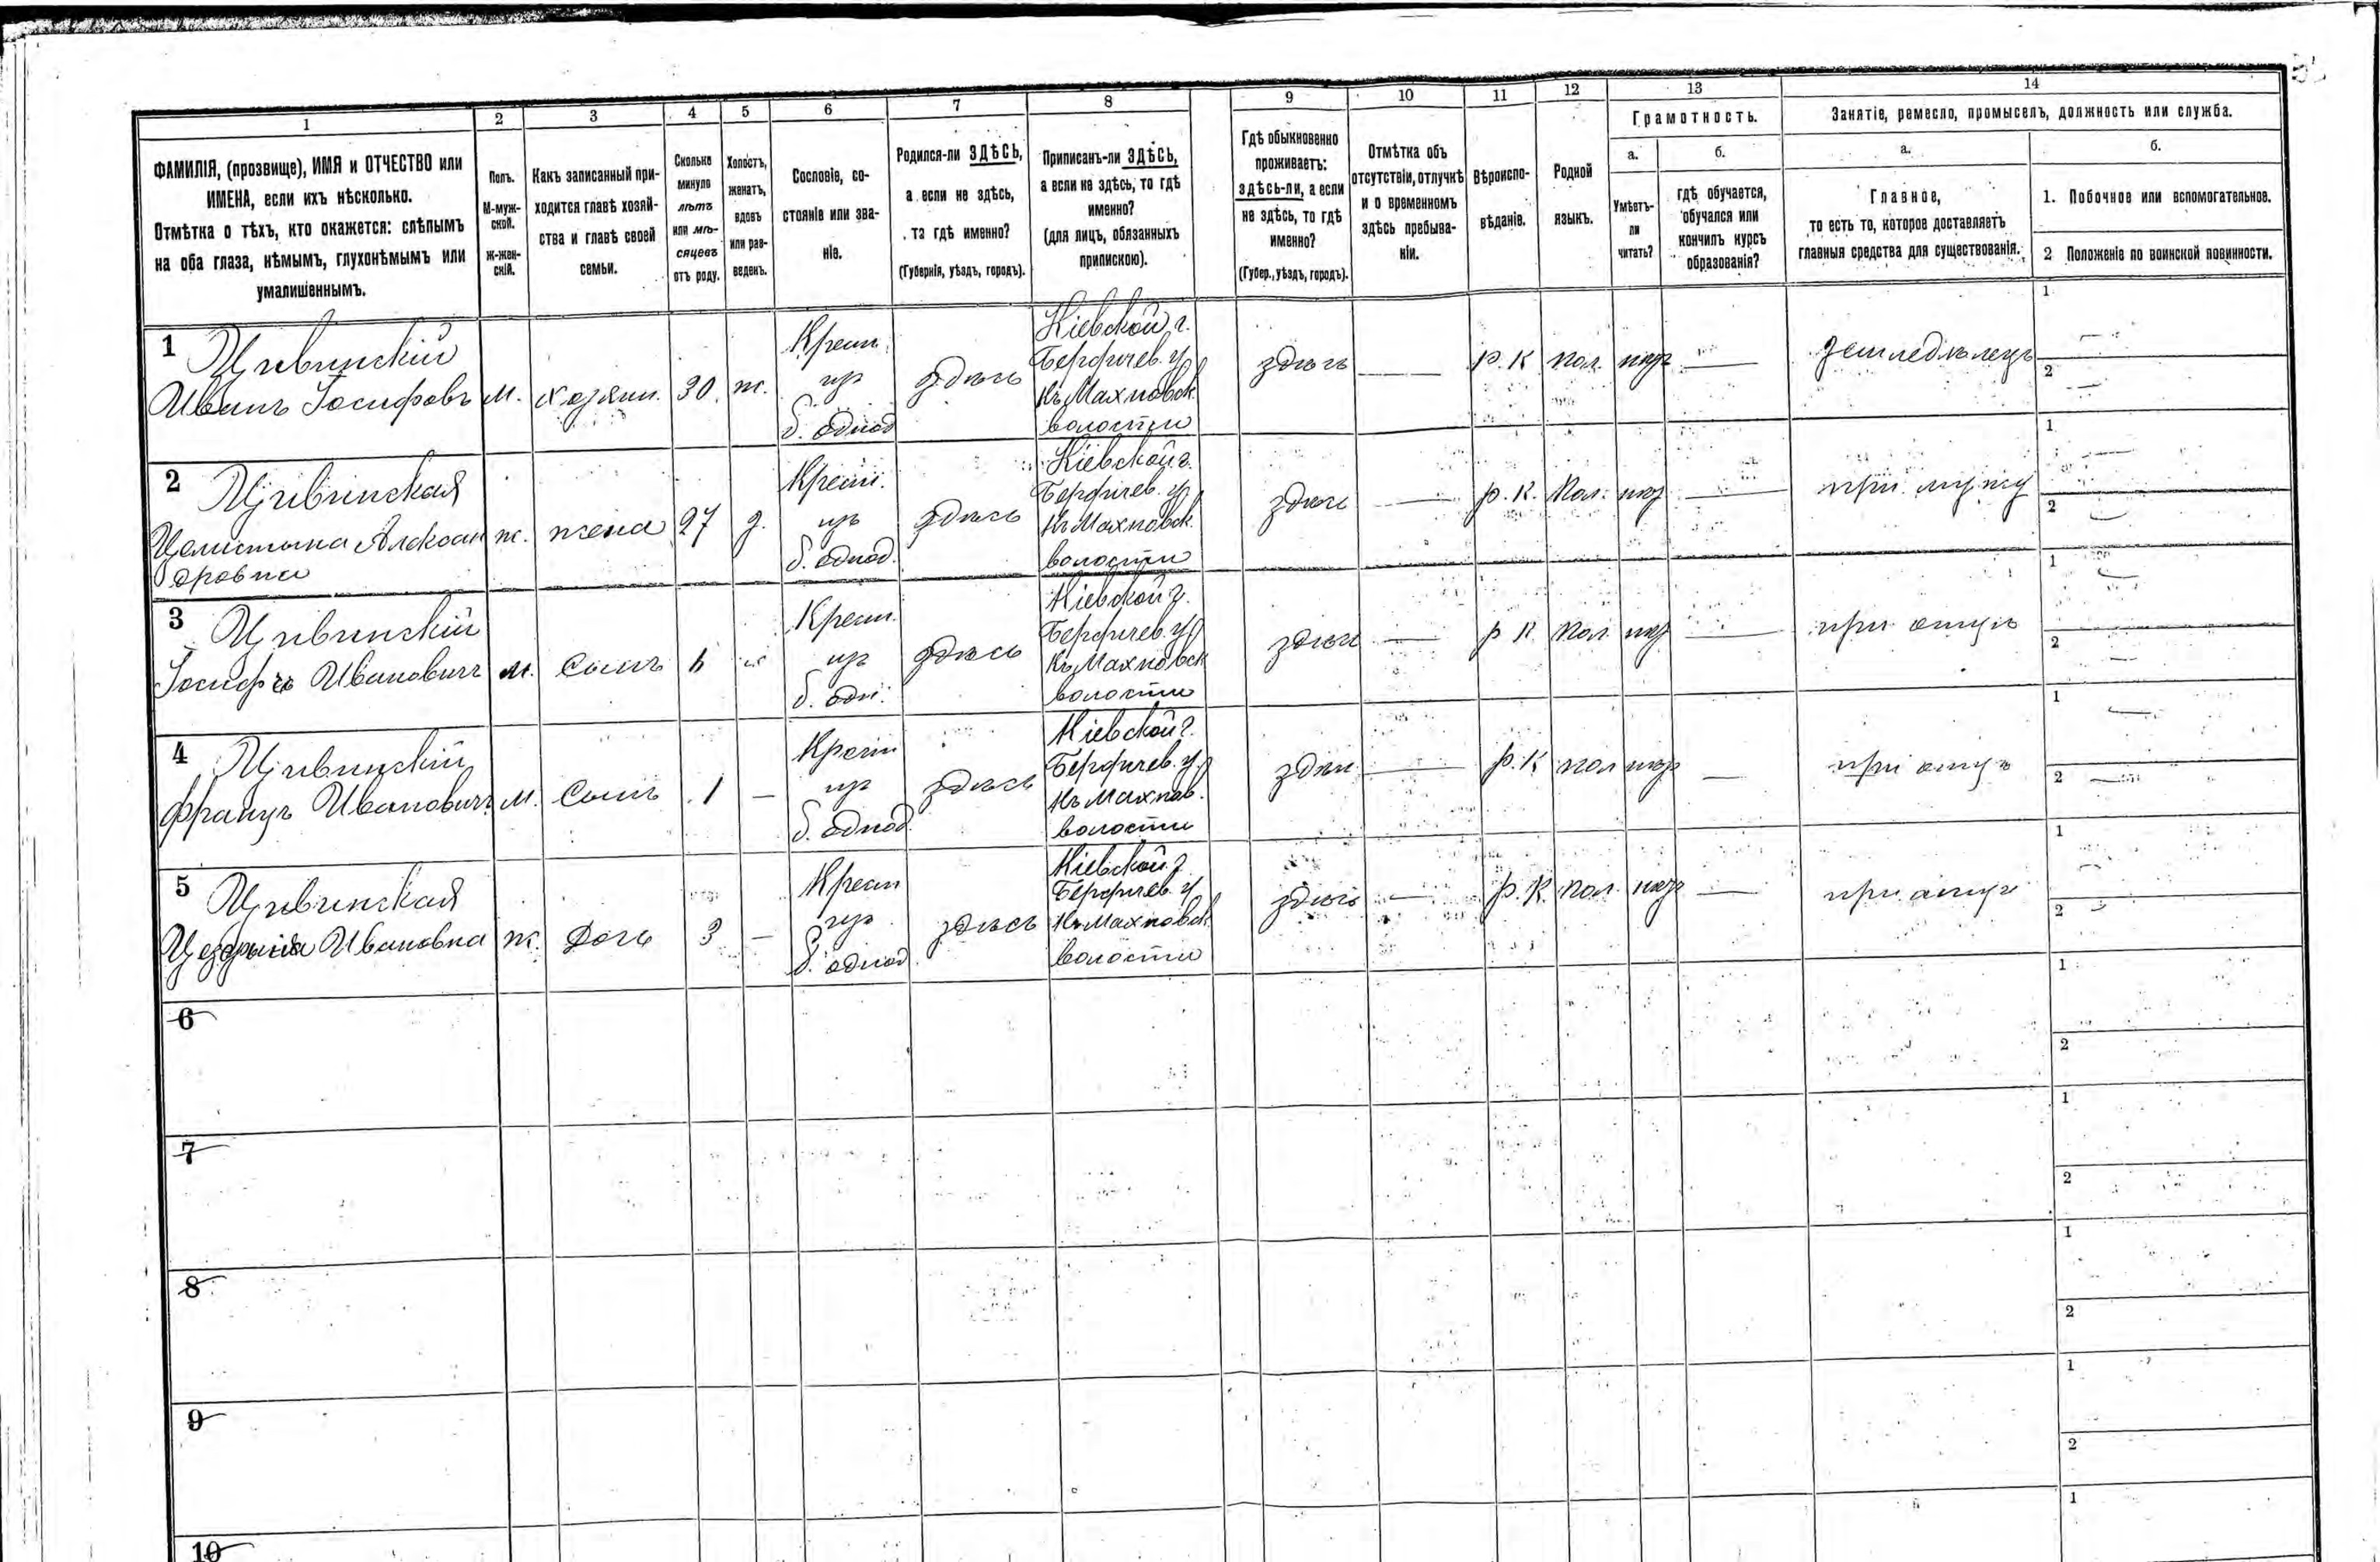 1 2 3 4 5 6 7 8 9 10 11 12 13 14
ФАМИЛІЯ, (прозвище), ИМЯ и ОТЧЕСТВО или
ИМЕНА, если ихъ нѣсколько.
Отмѣтка о тѣхъ, кто окажется: слѣпымъ
на оба глаза, нѣмымъ, глухонѣмымъ или
умалишеннымъ.
Полъ.
М-муж-
ской.
Ж-жен-
скій.
Какъ записанный при-
ходится главѣ хозяй-
ства и главѣ своей
семьи.
Сколько
минуло
лѣтъ
или мѣ-
сяцевъ
отъ роду.
Холостъ,
женатъ,
вдовъ
или раз-
веденъ.
Сословіе, со-
стояніе или зва-
ніе.
Родился-ли ЗДѢСЬ,
а если не здѣсь,
та гдѣ именно?
(Губернія, уѣздъ, городъ).
Приписанъ-ли ЗДѢСЬ,
а если не здѣсь, то гдѣ
именно?
(для лицъ, обязанныхъ
припискою).
Гдѣ обыкновенно
проживаетъ:
здѣсь-ли, а если
не здѣсь, то гдѣ
именно?
(Губер., уѣздъ, городъ).
Отмѣтка объ
отсутствіи, отлучкѣ
и о временномъ
здѣсь пребыва-
ніи.
Вѣроиспо-
вѣданіе.
Родной
языкъ.
Грамотность.
а.
Умѣетъ-
ли
читать?
б.
гдѣ обучается,
обучался или
кончилъ курсъ
образованія?
Занятіе, ремесло, промыселъ, должность или служба.
а.
Главное,
то есть то, которое доставляетъ
главныя средства для существованія.
б.
1. Побочное или вспомогательное.
2 Положеніе по воинской повинности.
1
Цивинскій
Иванъ Іосифовъ
м.
хозяин.
30.
ж.
Крест.
изъ
б. однод
здѣсь
Кіевской г.
Бердичев. у.
Къ Махновск.
волости
здѣсь
—
р. К
пол.
—
земледѣлецъ
1
2
2
Цивинская
Целистына Александ
ровна
ж.
жена
27
з.
Крест.
изъ
б. однод.
здѣсь
Кіевской г.
Бердичев. у.
Къ Махновск.
волости
здѣсь
—
р. К.
Пол.
—
при мужу
1
2
3
Цивинскій
Іосифъ Ивановичъ
м.
Сынъ
Крест.
изъ
б. одн.
здѣсь
Кіевской г.
Бердичев. у
Къ Махновск
волости
здѣсь
—
р К
Пол
—
при отцѣ
1
2
4
Цивинскій
Францъ Ивановичъ
м.
Сынъ
1
—
Крест
изъ
б. однод.
здѣсь
Кіевской г.
Бердичев. у.
Къ Махнов.
волости
здѣсь
—
р. К
пол
—
при отцѣ
1
2
5
Цивинская
Ивановна
ж.
Дочь
3
—
Крест
изъ
б. однод
здѣсь
Кіевской г.
Бердичев. у
Къ Махновск.
волости
здѣсь
—
р. К.
пол.
—
при отцѣ
1
2
6
1
2
7
1
2
8
1
2
9
1
2
10
1